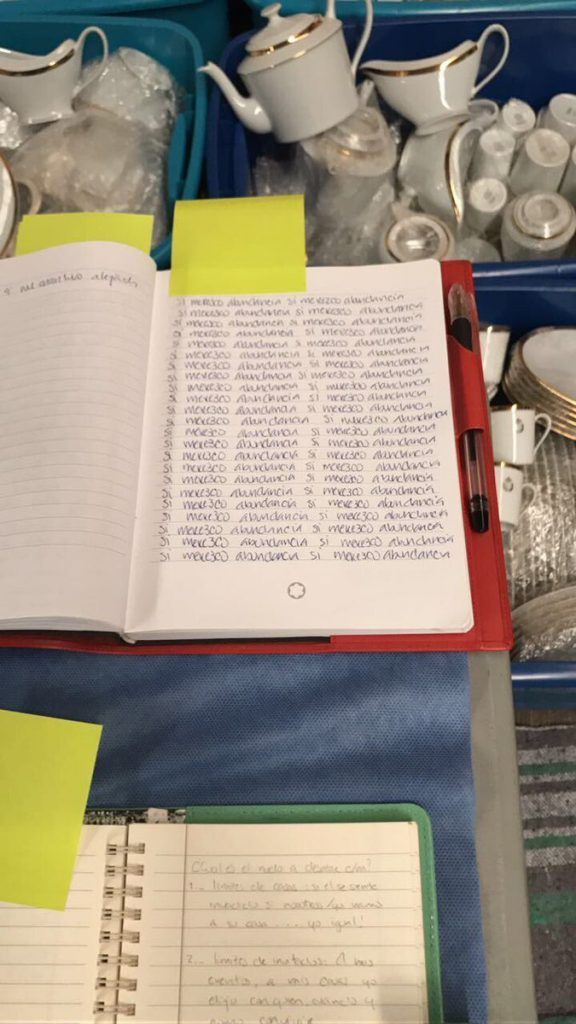 Si merezco abundancia si merezco abundancia
si merezco abundancia si merezco abundancia
si merezco abundancia si merezco abundancia
si merezco abundancia si merezco abundancia
si merezco abundancia si merezco abundancia
si merezco abundancia si merezco abundancia
si merezco abundancia si merezco abundancia
si merezco abundancia si merezco abundancia
si merezco abundancia si merezco abundancia
si merezco abundancia si merezco abundancia
si merezco abundancia si merezco abundancia
si merezco abundancia si merezco abundancia
si merezco abundancia si merezco abundancia
si merezco abundancia si merezco abundancia
si merezco abundancia si merezco abundancia
si merezco abundancia si merezco abundancia
si merezco abundancia si merezco abundancia
si merezco abundancia si merezco abundancia
si merezco abundancia si merezco abundancia
si merezco abundancia si merezco abundancia
si merezco abundancia si merezco abundancia
si merezco abundancia si merezco abundancia
si merezco abundancia si merezco abundancia
Cual es el miedo a
1... limites de casas: si el se siente
si nosotros/yo vamos
a su casa .... yo igual!
2... limites de A mis
eventos, a mis casas yo
elijo con quien, cuando y
como convivir